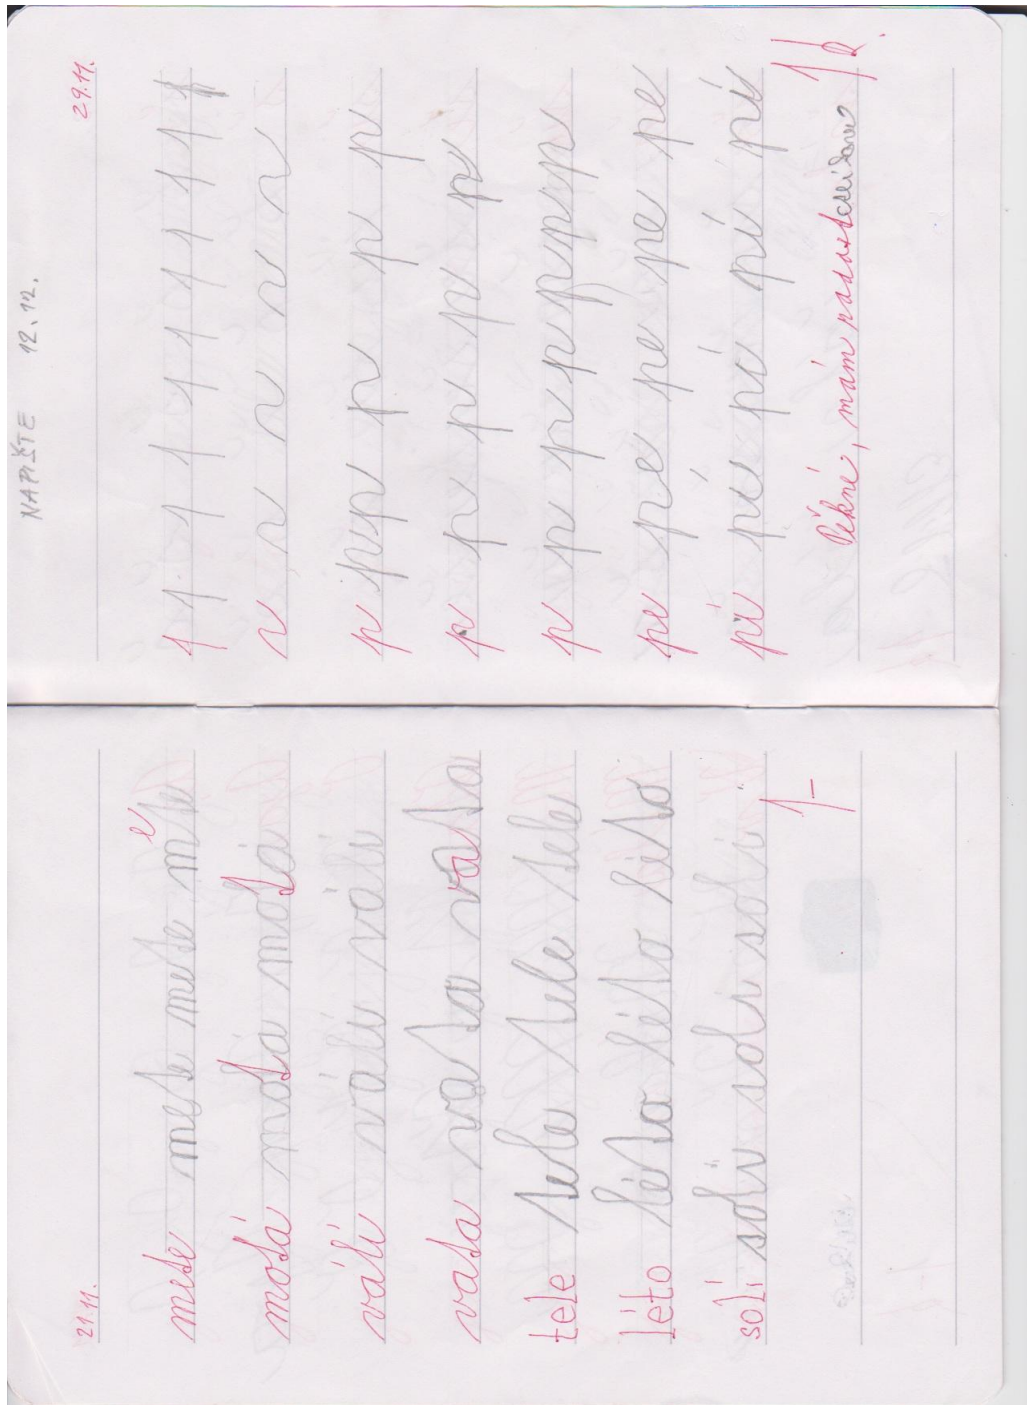 21.11.
mete mete mete mete
e
motá motá motá
válí válí válí
vata vata vata
tele tele tele tele
léto léto léto léto
solí solí solí solí
1-
NAPIŠTE 12.12.
29.11.
1 1 1 1 1 1 1 1 1
n n n n n
p p p p p p
p p p p p
p p p p p p p
pe pe pe pe pe
pi pí pí pí pí
Pěkné, mám radost
1